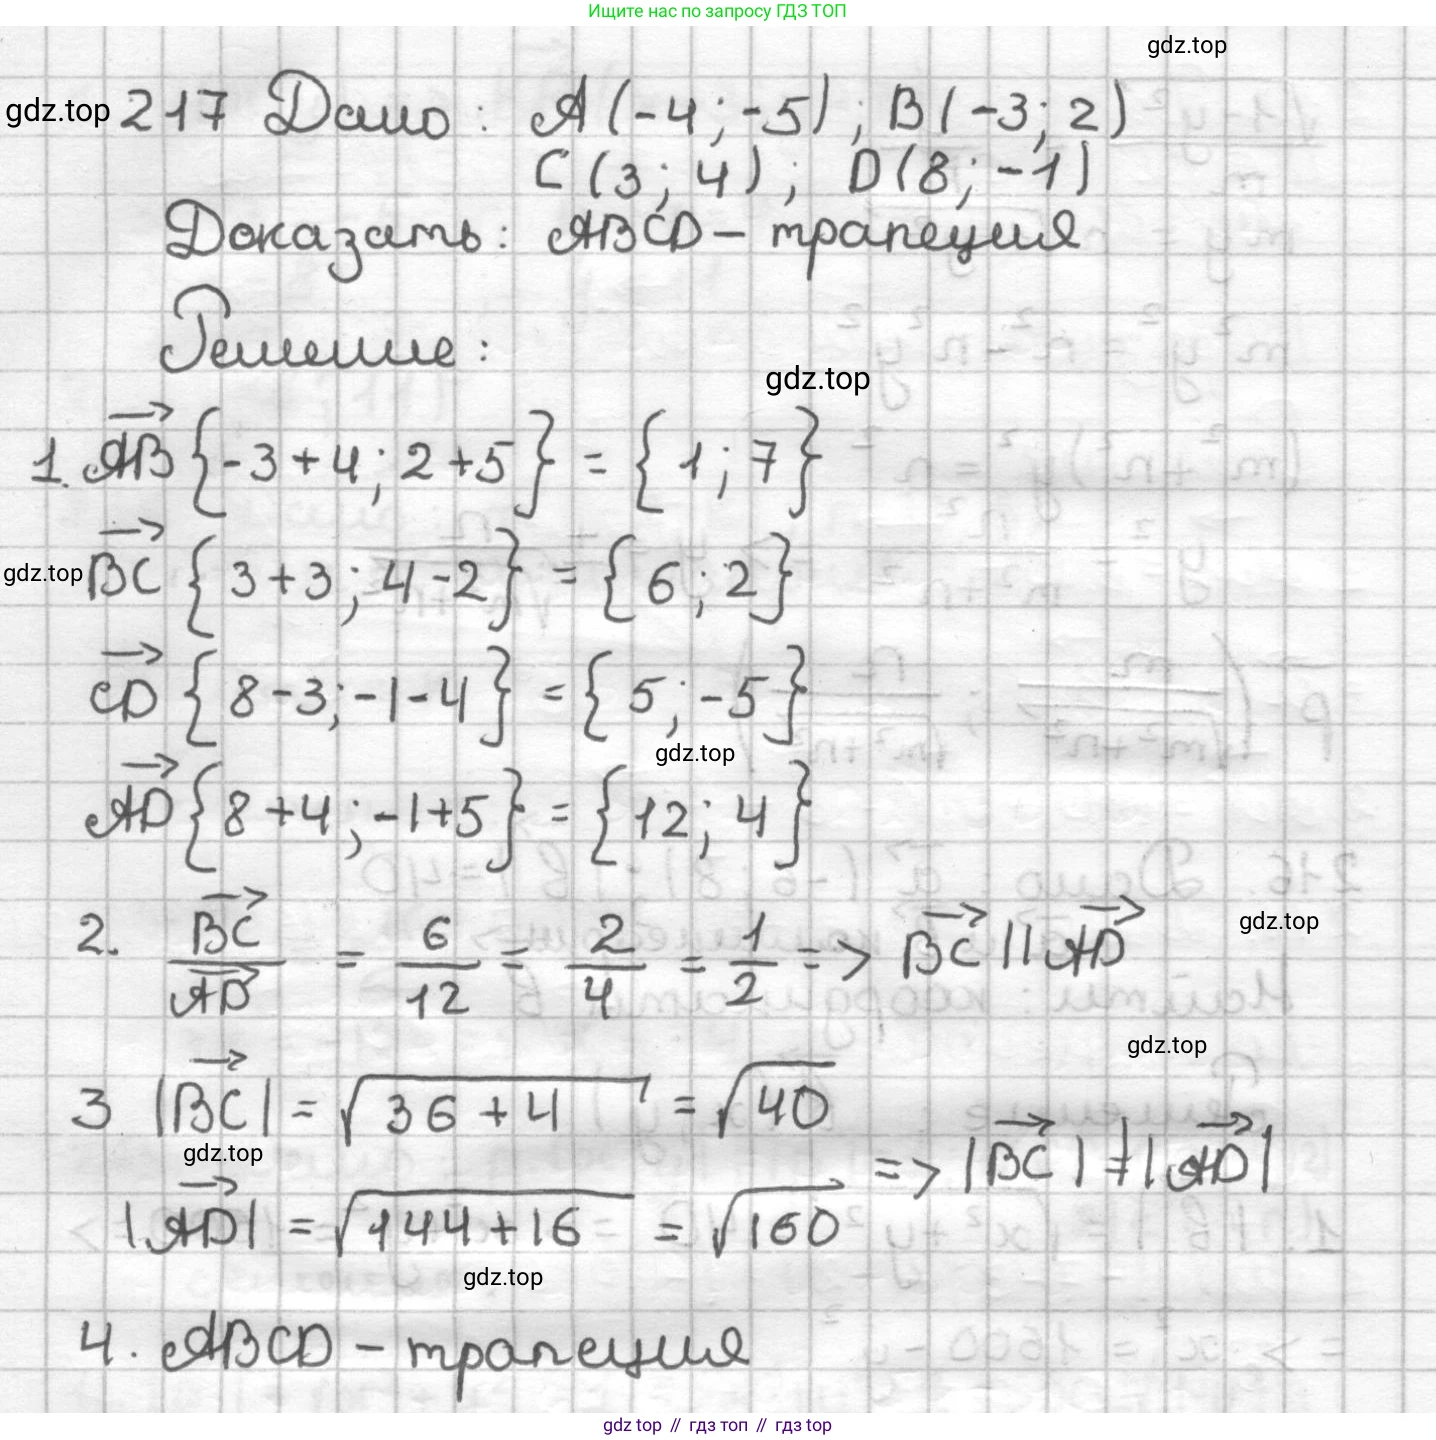 Ищите нас по запросу ГДЗ ТОП
gdz.top
gdz.top 217 Дано: A(-4; -5); B(-3; 2)
C(3; 4); D(8; -1)
Доказать: ABCD – трапеция
Решение:
gdz.top
1. AB {-3+4; 2+5} = {1; 7}
gdz.top BC {3+3; 4-2} = {6; 2}
CD {8-3; -1-4} = {5; -5}
gdz.top
AD {8+4; -1+5} = {12; 4}
2. BC/AD = 6/12 = 2/4 = 1/2 => BC || AD
gdz.top
gdz.top
3 |BC| = √36+4 = √40
gdz.top
=> |BC| ≠ |AD|
|AD| = √144+16 = √160
gdz.top
4. ABCD – трапеция
gdz top // гдз топ // gdz top